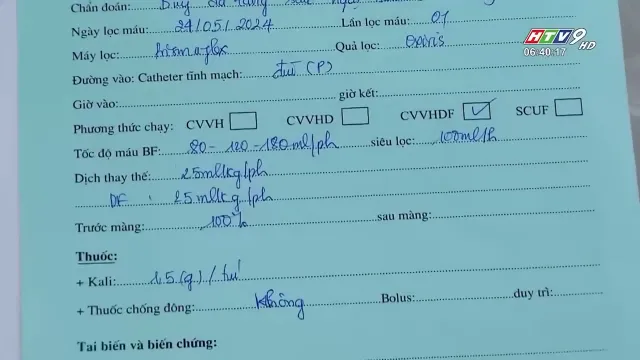 Chẩn đoán: Suy đa tạng
HTV9 HD
06:40:17
Ngày lọc máu: 24/05/2024 Lần lọc máu: 01
Máy lọc: Prismaflex Quả lọc: Oxiris
Đường vào: Catheter tĩnh mạch: đùi (P)
Giờ vào: giờ kết:
Phương thức chạy: CVVH CVVHD CVVHDF ✓ SCUF
Tốc độ máu BF: 80 - 120 - 180 ml/ph siêu lọc: 100ml/h
Dịch thay thế: 25ml/kg/ph
DF : 25ml/kg/ph
Trước màng: 100% sau màng:
Thuốc:
+ Kali: 1,5(g)/túi
+ Thuốc chống đông: Không Bolus: duy trì:
Tai biến và biến chứng: